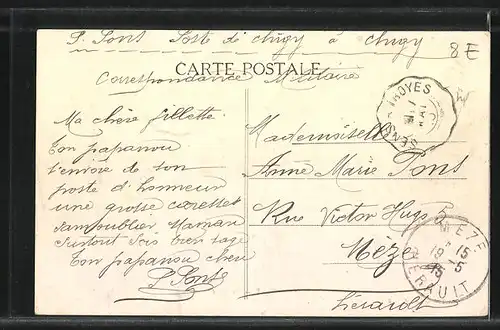 P. Pons Poste d'Augy à Augy
8E
Correspondance Militaire
CARTE POSTALE
TROYES
SENS
Ma chère fillette
Ton papanou
t'envoie de son
poste d'honneur
une grosse caresse
sans oublier Maman
surtout sois bien sage
Ton papanou chéri
P. Pons
Mademoiselle
Anne Marie Pons
Rue Victor Hugo 5
Mèze
Hérault
MEZE
15-5
15
HERAULT